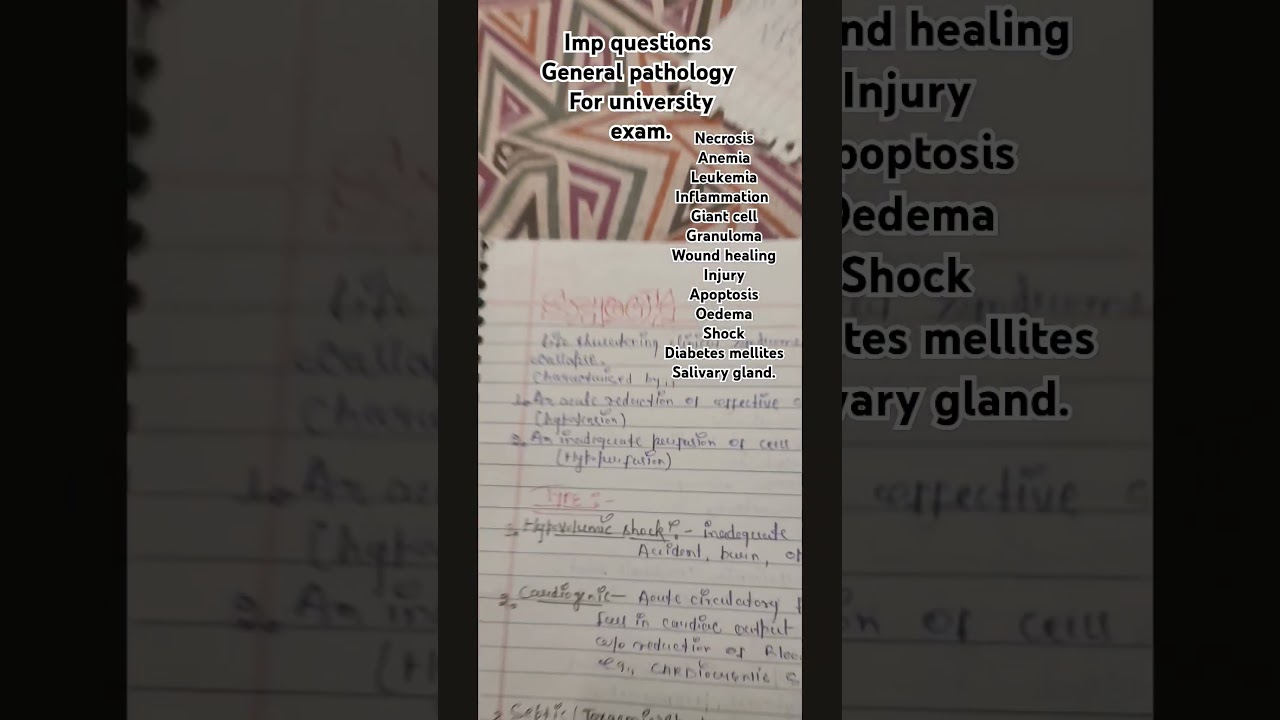 Imp questions
General pathology
For university
exam.
Necrosis
Anemia
Leukemia
Inflammation
Giant cell
Granuloma
Wound healing
Injury
Apoptosis
Oedema
Shock
Diabetes mellites
Salivary gland.
life threatening clinical syndrome
collapse.
Characterised by,,
1. An acute reduction of effective c
(hypotension)
2. An inadequate perfusion of cell
(Hypoperfusion)
TYPE :-
1. Hypovolumic shock :- inadequate
Accident, burn, o
2. Cardiogenic - Acute circulatory f
fall in cardiac output
w/o reduction of Bloo
e.g., CARDIOGENIC S
nd healing
Injury
poptosis
Oedema
Shock
tes mellites
vary gland.